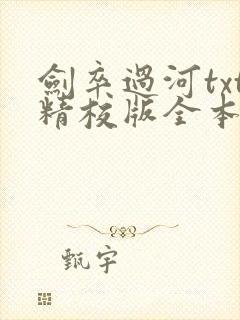 劍卒過河txt
精校版全本
甄宇